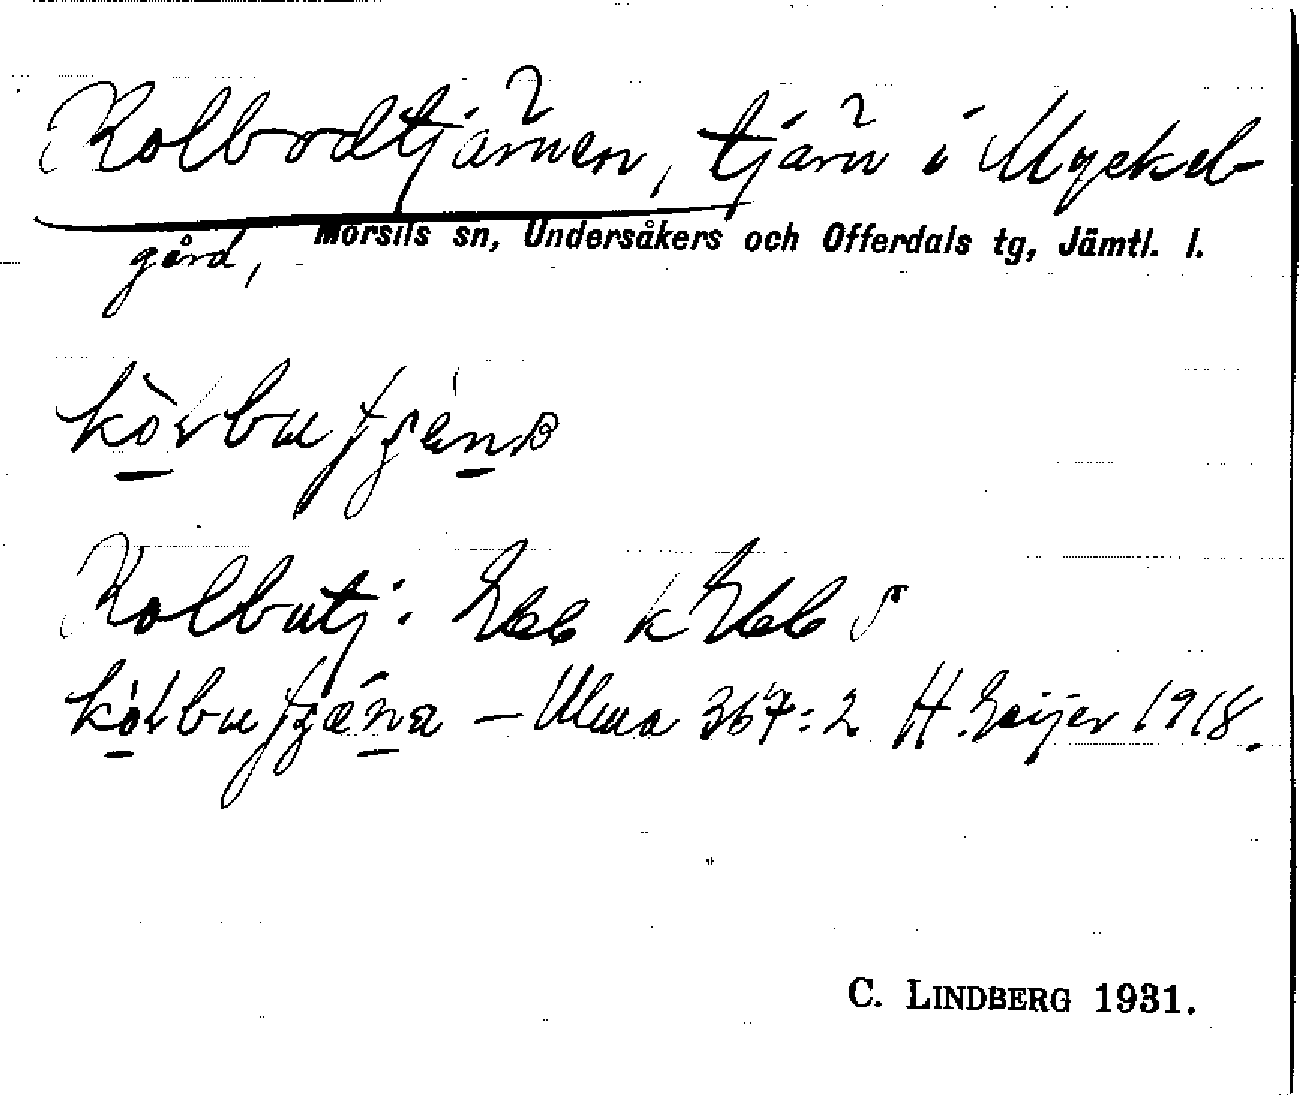 Kolbodtjärnen, tjärn i Myckel-
gård, Mörsils sn, Undersåkers och Offerdals tg, Jämtl. l.
Kolbutj. Ebb k Ebb
— Ulma 367:2 H. Geijer 1918.
C. LINDBERG 1931.